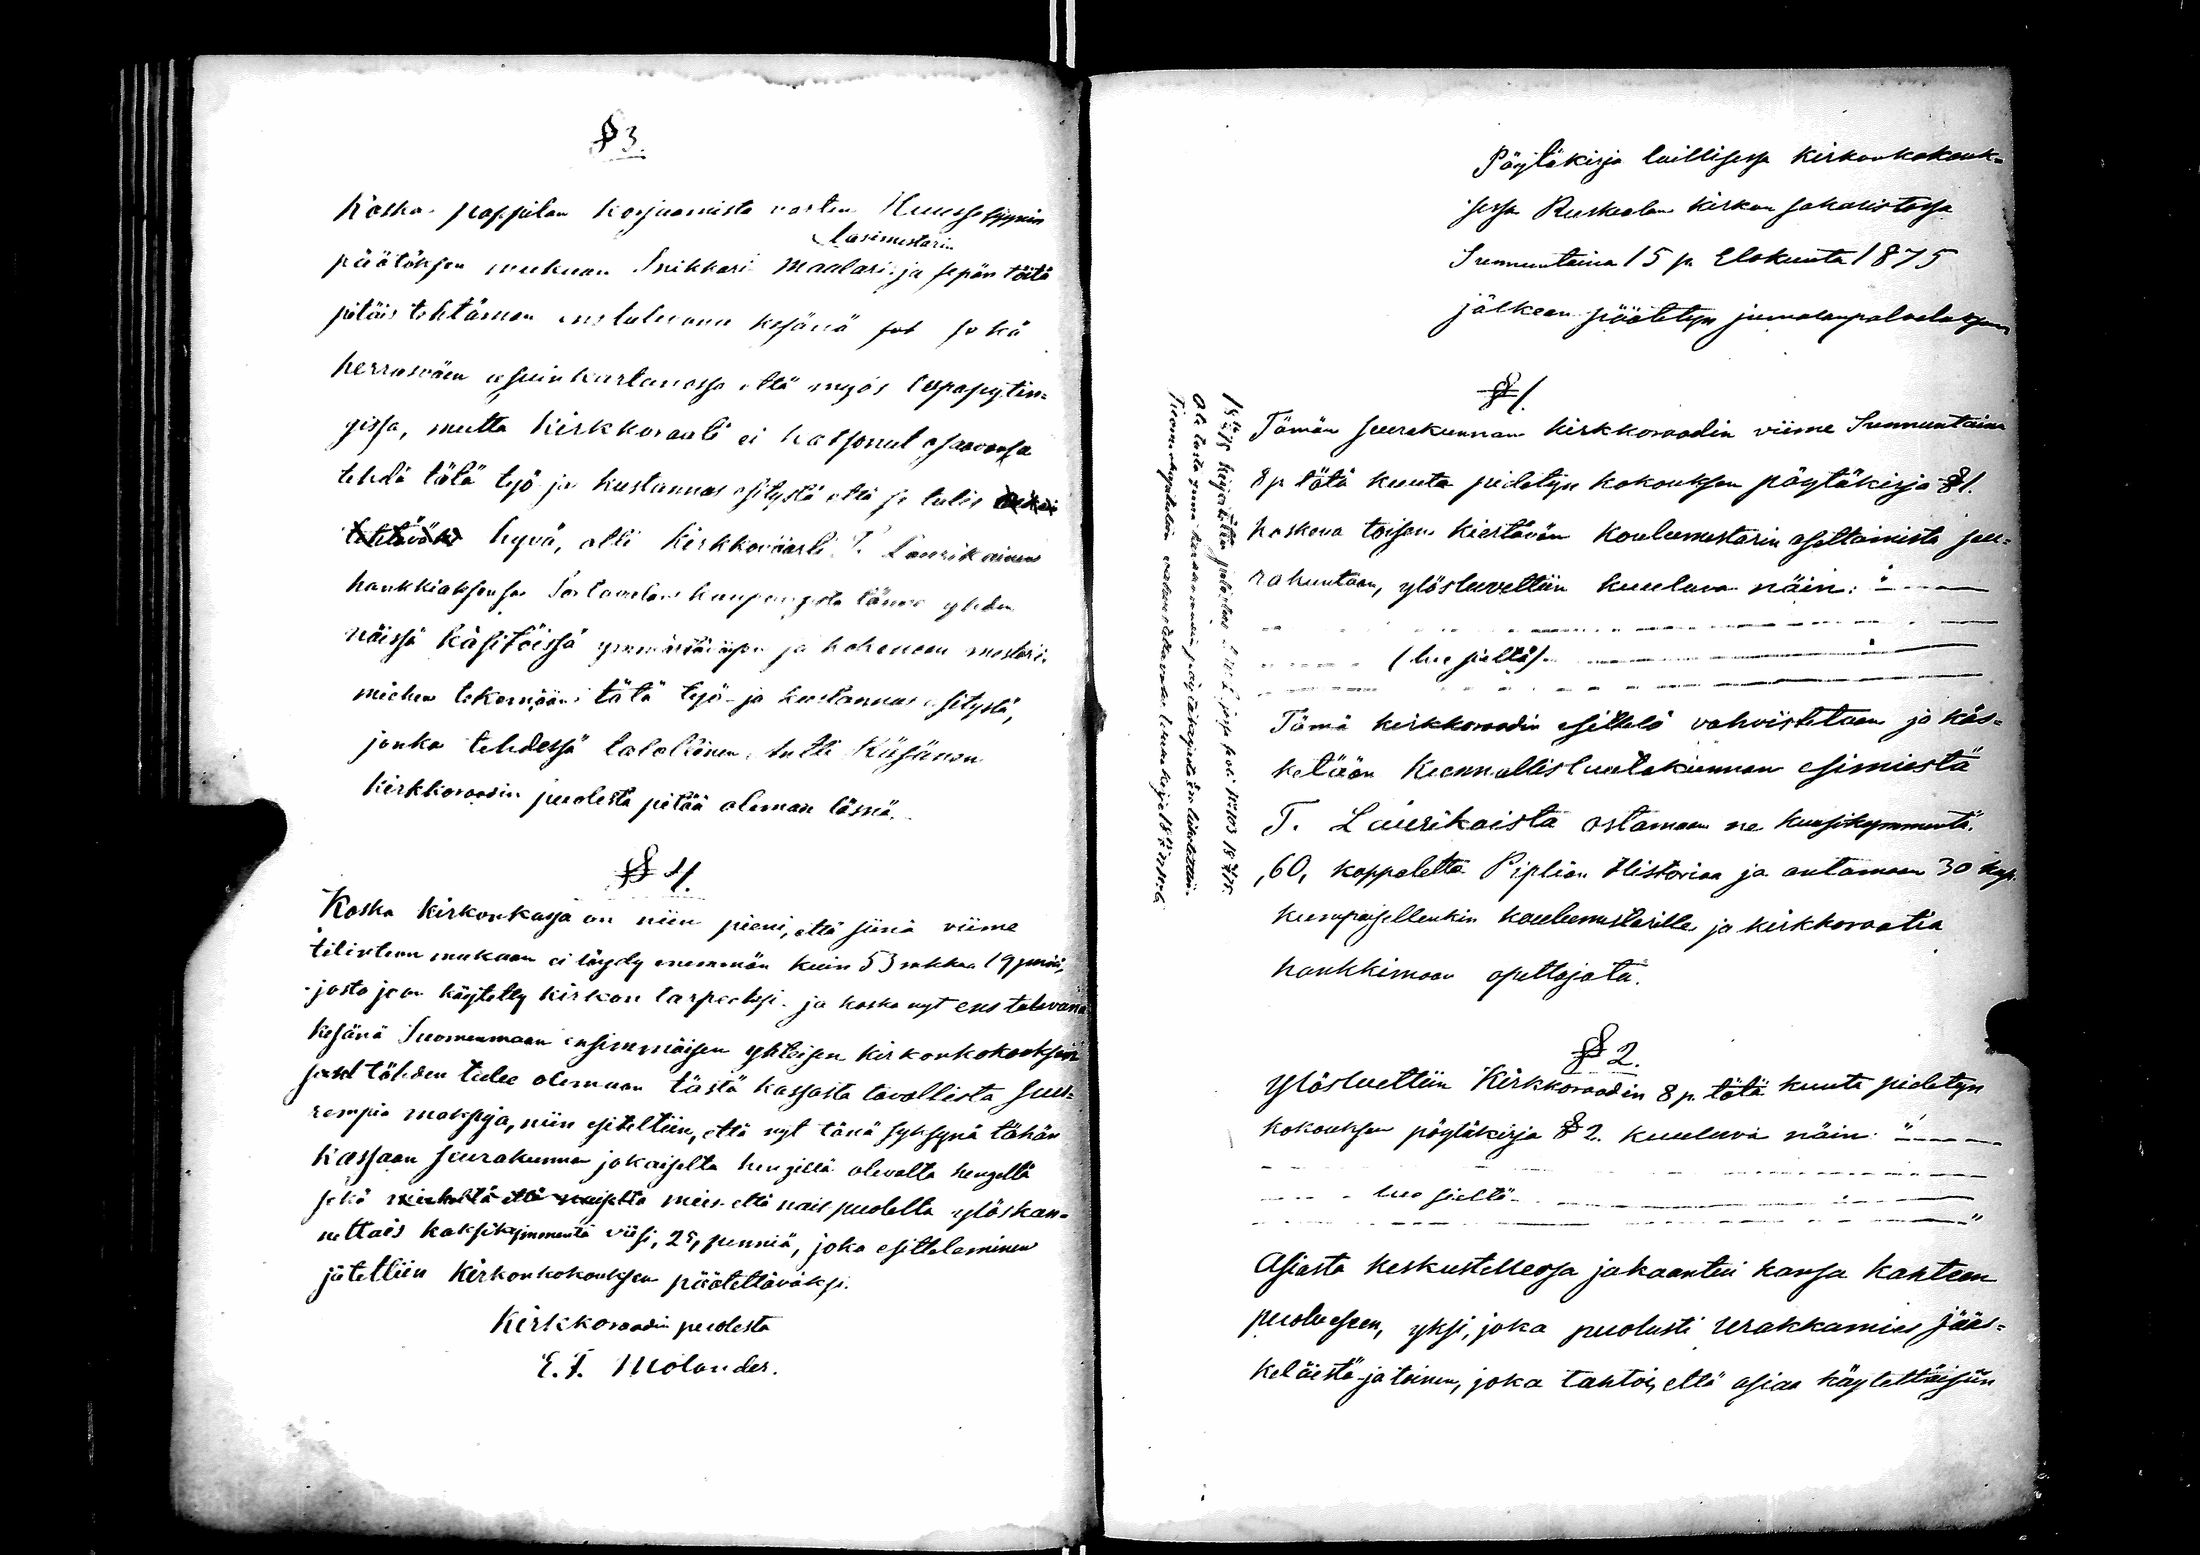 § 3.
Koska pappilan korjaamista varten Huussyynin
Lasimestarin
päätöksen mukaan Snikkari Maalari ja sepän töitä
pitäis tehtämän ens tulevana kesänä sek sekä
herrasväen asuinkartanossa että myös lupapytin=
gissa, mutta Kirkkoraati ei katsonut osaavansa
tehdä tätä työ ja kustannus esitystä että se tulis
tehtäväksi hyvä, alli Kirkkoväärti T. Laurikainen
hankkiaksensa Sortavalan kaupungista tänne yhden
näissä Käsitöissä ymmärtäväisen ja kokeneen mestari
miehen tekemään tätä työ- ja kustannus esitystä,
jonka tehdessä talollinen Antti Kiisänen
Kirkkoraadin puolesta pitää oleman läsnä.
§ 4.
Koska Kirkonkassa on niin pieni, että siinä viime
tilinteon mukaan ei löydy enemmän kuin 53 mkkaa 19 penniä,
josta jo on käytetty kirkon tarpeeksi ja koska nyt ens tulevana
kesänä Suomenmaan ensimmäisen yhteisen kirkonkokouksen
tähden tulee olemaan tästä kassasta tavallista suu=
rempia maksuja, niin esiteltiin, että nyt tänä syksynä tähän
Kassaan seurakunnan jokaiselta hengillä olevalta hengeltä
sekä mieheltä että naiselta mies- että nais puolelta ylöskan=
nettais kaksikymmentä viisi, 25, penniä, joka esitteleminen
jätettiin Kirkonkokouksen päätettäväksi.
Kirkkoraadin puolesta
E. F. Molander.
Pöytäkirja laillisessa Kirkonkokouk=
sessa Ruskealan Kirkon sakaristossa
Sunnuntaina 15 p. Elokuuta 1875
jälkeen päätetyn jumalanpalveluksen
§ 1.
Tämän seurakunnan kirkkoraadin viime Sunnuntaina
8 p. tätä kuuta pidetyn kokouksen pöytäkirja § 1.
koskeva toisen kiertävän koulumestarin asettamista seu=
rakuntaan, ylösluettiin kuuluva näin: "
(lue sieltä)
Tämä kirkkoraadin esittelö vahvistetaan ja käs=
ketään Kunnallislautakunnan esimiestä
T. Laurikaista ostamaan ne kuusikymmentä,
,60, kappaletta Piplian Historiaa ja antamaan 30 kap.
kumpaisellenkin koulumestarille ja kirkkoraatia
hankkimaan opettajata.
§ 2.
Ylösluettiin Kirkkoraadin 8 p. tätä kuuta pidetyn
kokouksen pöytäkirja § 2. kuuluva näin: "
lue sieltä
"
Asiasta keskustellessa jakaantui kansa kahteen
puolueseen, yksi, joka puolusti urakkamies Jääs=
keläistä ja toinen, joka tahtoi, että asiaa käytettäisiin